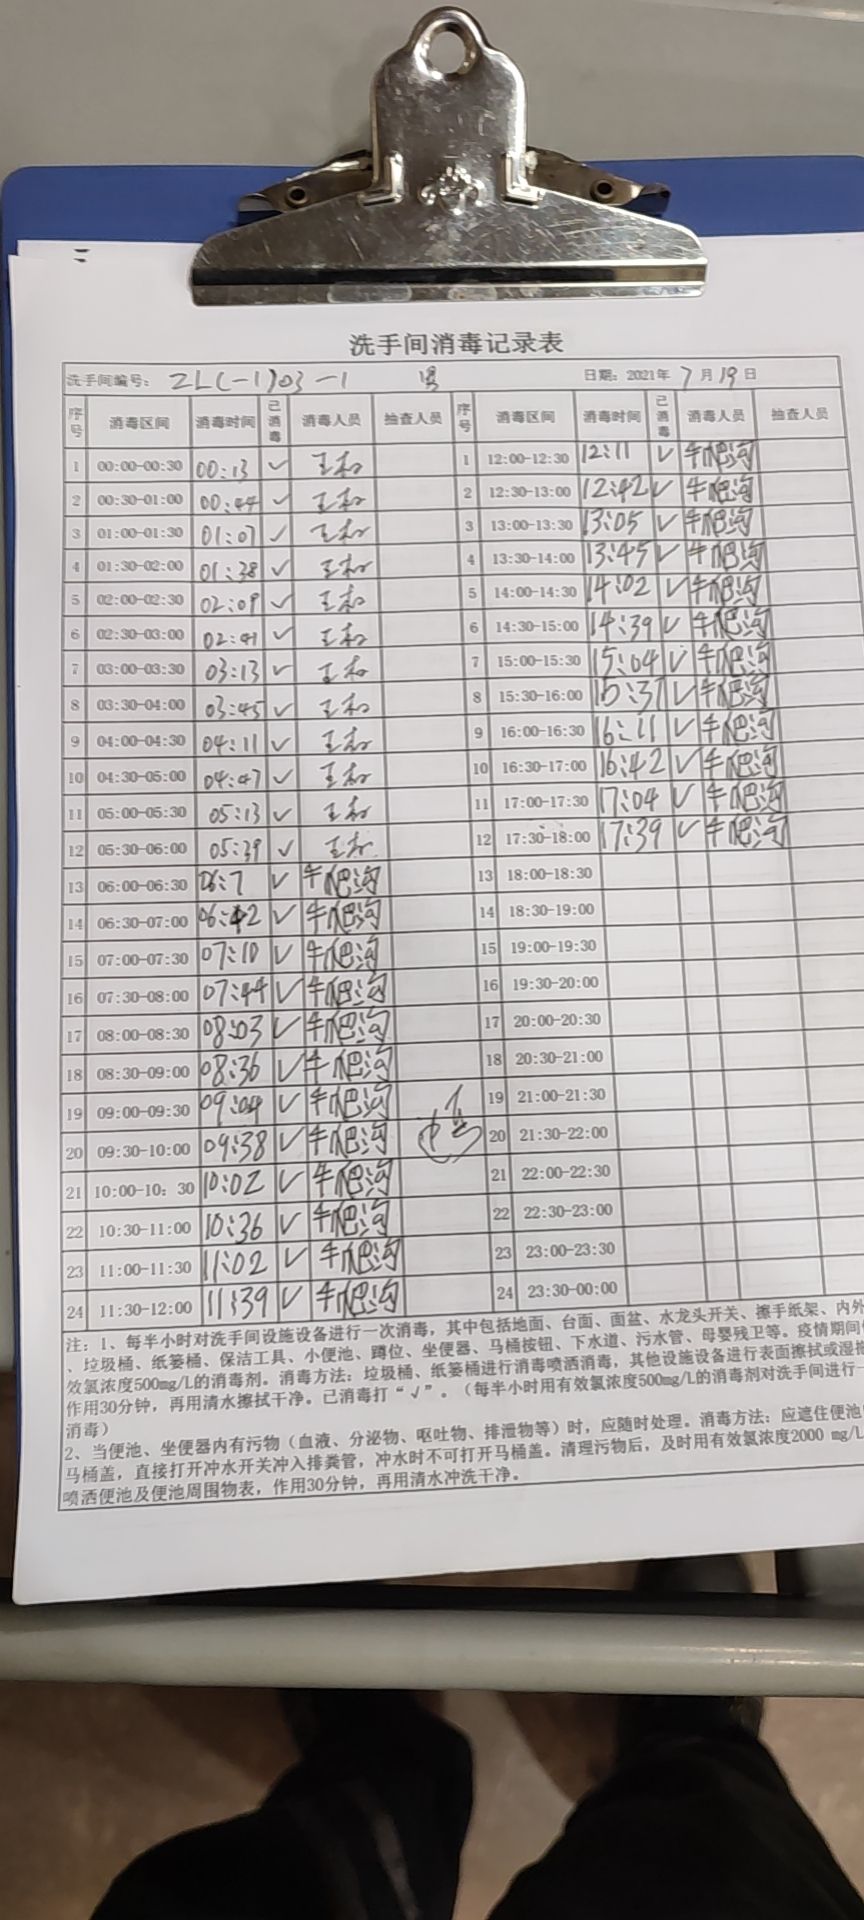 洗手间消毒记录表
洗手间编号: ZL(-1)03-1 男 日期: 2021年 7月 19日
序号 消毒区间 消毒时间 已消毒 消毒人员 抽查人员 序号 消毒区间 消毒时间 已消毒 消毒人员 抽查人员
1 00:00-00:30 00:13 √ 王和 1 12:00-12:30 12:11 √
2 00:30-01:00 00:44 √ 王和 2 12:30-13:00 12:42 √
3 01:00-01:30 01:07 √ 王和 3 13:00-13:30 13:05 √
4 01:30-02:00 01:38 √ 王和 4 13:30-14:00 13:45 √
5 02:00-02:30 02:09 √ 王和 5 14:00-14:30 14:02 √
6 02:30-03:00 02:41 √ 王和 6 14:30-15:00 14:39 √
7 03:00-03:30 03:13 √ 王和 7 15:00-15:30 15:04 √
8 03:30-04:00 03:45 √ 王和 8 15:30-16:00 15:37 √
9 04:00-04:30 04:11 √ 王和 9 16:00-16:30 16:11 √
10 04:30-05:00 04:47 √ 王和 10 16:30-17:00 16:42 √
11 05:00-05:30 05:13 √ 王和 11 17:00-17:30 17:04 √
12 05:30-06:00 05:39 √ 王和 12 17:30-18:00 17:39 √
13 06:00-06:30 06:7 √ 13 18:00-18:30
14 06:30-07:00 06:42 √ 14 18:30-19:00
15 07:00-07:30 07:10 √ 15 19:00-19:30
16 07:30-08:00 07:44 √ 16 19:30-20:00
17 08:00-08:30 08:03 √ 17 20:00-20:30
18 08:30-09:00 08:36 √ 18 20:30-21:00
19 09:00-09:30 09:04 √ 19 21:00-21:30
20 09:30-10:00 09:38 √ 20 21:30-22:00
21 10:00-10: 30 10:02 √ 21 22:00-22:30
22 10:30-11:00 10:36 √ 22 22:30-23:00
23 11:00-11:30 11:02 √ 23 23:00-23:30
24 11:30-12:00 11:39 √ 24 23:30-00:00
注: 1、每半小时对洗手间设施设备进行一次消毒, 其中包括地面、台面、面盆、水龙头开关、擦手纸架、内外
、垃圾桶、纸篓桶、保洁工具、小便池、蹲位、坐便器、马桶按钮、下水道、污水管、母婴残卫等。疫情期间
效氯浓度500mg/L的消毒剂。消毒方法: 垃圾桶、纸篓桶进行消毒喷洒消毒, 其他设施设备进行表面擦拭或湿拖
作用30分钟, 再用清水擦拭干净。已消毒打“√”。(每半小时用有效氯浓度500mg/L的消毒剂对洗手间进行一
消毒)
2、当便池、坐便器内有污物(血液、分泌物、呕吐物、排泄物等)时, 应随时处理。消毒方法: 应遮住便池
马桶盖, 直接打开冲水开关冲入排粪管, 冲水时不可打开马桶盖。清理污物后, 及时用有效氯浓度2000 mg/L
喷洒便池及便池周围物表, 作用30分钟, 再用清水冲洗干净。